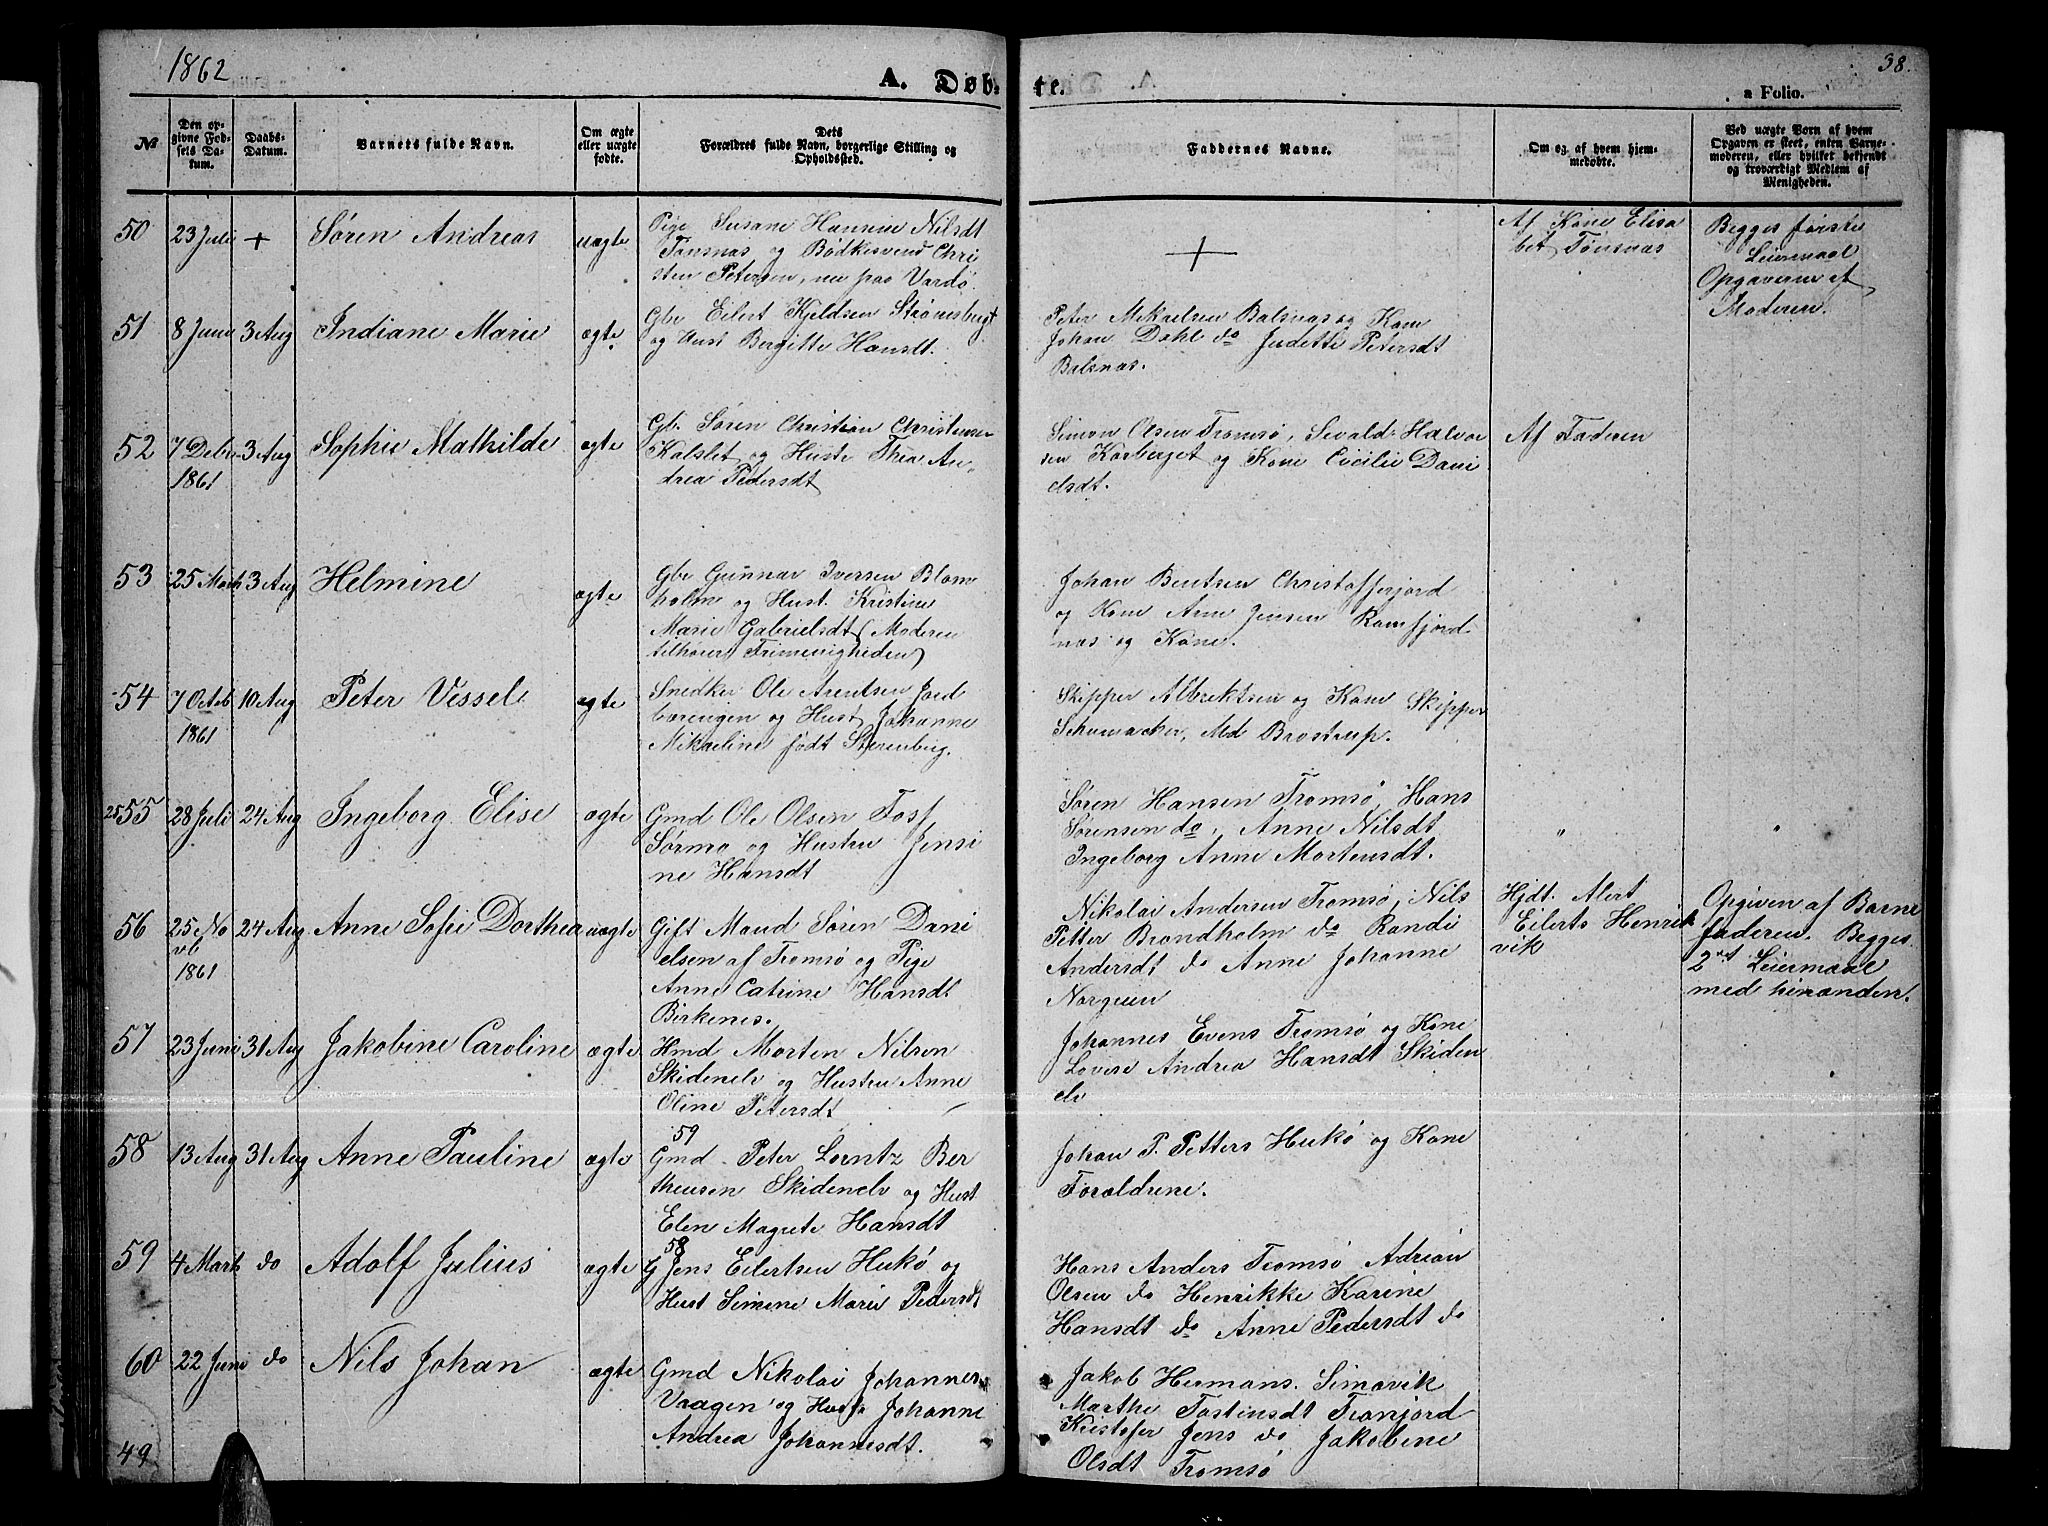 1862
A. Døb-
te.
38.
a Folio.
№
Den op-
givne Fød-
sels Da-
tum.
Daabs-
Datum.
Barnets fulde Navn.
Om ægte
eller uægte
fødte.
Dets
Forældres fulde Navn, borgerlige Stilling og
Opholdssted.
Faddernes Navne.
Om og af hvem hjem-
medøbte.
Ved uægte Børn af hvem
Opgaven er skeet, enten Barne-
moderen, eller hvilket bekjendt
og troværdigt Medlem af
Menigheden.
50
23 Juli
+
Søren Andreas
uægte
Pige Susane Hansine Nilsdt
Tønsnæs og Bødkesvend Chri
sten Petersen, nu paa Vardø.
+
Af Kone Elisa
bet Tønsnæs
Begges første
Leiermaal
Opgaven af
Moderen.
51
8 Juni
3 Aug
Indiane Marie
ægte
Gbr Eilert Kjeldsen Strømsbugt
og Hust Bergitte Hansdt.
Peter Mikaelsen Balsnæs og Kone
Johan Dahl do Judette Petersdt
Balsnæs.
52
7 Debr
1861
3 Aug
Sophie Mathilde
ægte
Gb. Søren Christian Christensen
Kalslet og Hustr Thea An-
drea Pedersdt
Simon Olsen Tromsø, Sivald Halvor
sen Kørberget og Kone Cicilie Dani
elsdt.
Af Faderen
53
25 Marts
3 Aug
Helmine
ægte
Gbr Gunnar Iversen Blom
holm og Hust. Kristine
Marie Gabrielsdt (Moderen
tilhører Frimenigheden)
Johan Bentsen Christofferjord
og Kone Arne Jensen Ramfjord
næs og Kone.
54
7 Octob
1861
10 Aug
Peter Vessel
ægte
Snedker Ole Arentsen Jord
bærengen og Hust Johanne
Mikaeline født Sterenberg.
Skipper Albrektsen og Kone Skipper
Schumacker, Md Brostrup.
2555
28 Juli
24 Aug
Ingeborg Elise
ægte
Gmd Ole Olsen Fosf
Sørmo og Hustru Jensi
ne Hansdt
Søren Hansen Tromsø, Hans
Sørensen do, Anne Nilsdt
Ingeborg Anne Mortensdt.
"
"
56
25 No
vb
1861
24 Aug
Anne Sofie Dorthea
uægte
Gift Mand Søren Dani
elsen af Tromsø og Pige
Anne Catrine Hansdt
Birkenes.
Nikolai Andersen Tromsø, Nils
Petter Brondholm do Randi
Andersdt do Anne Johanne
Norgreen
Hjdt. Alert
Eilerts Henrik
vik
Opgiven af Barne
faderen. Begges
2det Leiermaal
med hinanden.
57
23 Juni
31 Aug
Jakobine Caroline
ægte
Hmd Morten Nilsen
Skidenelv og Hustru Anne
Oline Petersdt
Johannes Evens Tromsø og Kone
Lovise Andrea Hansdt Skiden
elv
58
13 Aug
31 Aug
Anne Pauline
ægte
59
Gmd Peter Lorntz Ber
theusen Skidenelv og Hust
Elen Magrete Hansdt
Johan P. Petters Hukø og Kone
Forældrene.
59
4 Marts
do
Adolf Julius
ægte
58
G Jens Eilertsen Hukø og
Hust Simine Marie Pedersdt
Hans Anders Tromsø Adrian
Olsen do Henrikke Karine
Hansdt do Anne Pedersdt do
60
22 Juni
do
Nils Johan
ægte
Gmd Nikolai Johannes
Vaagen og Hust Johanne
Andrea Johannesdt.
Jakob Hermans. Simavik
Marthe Tostensdt Tronjord
Kristofer Jens do Jakobine
Olsdt Tromsø
49